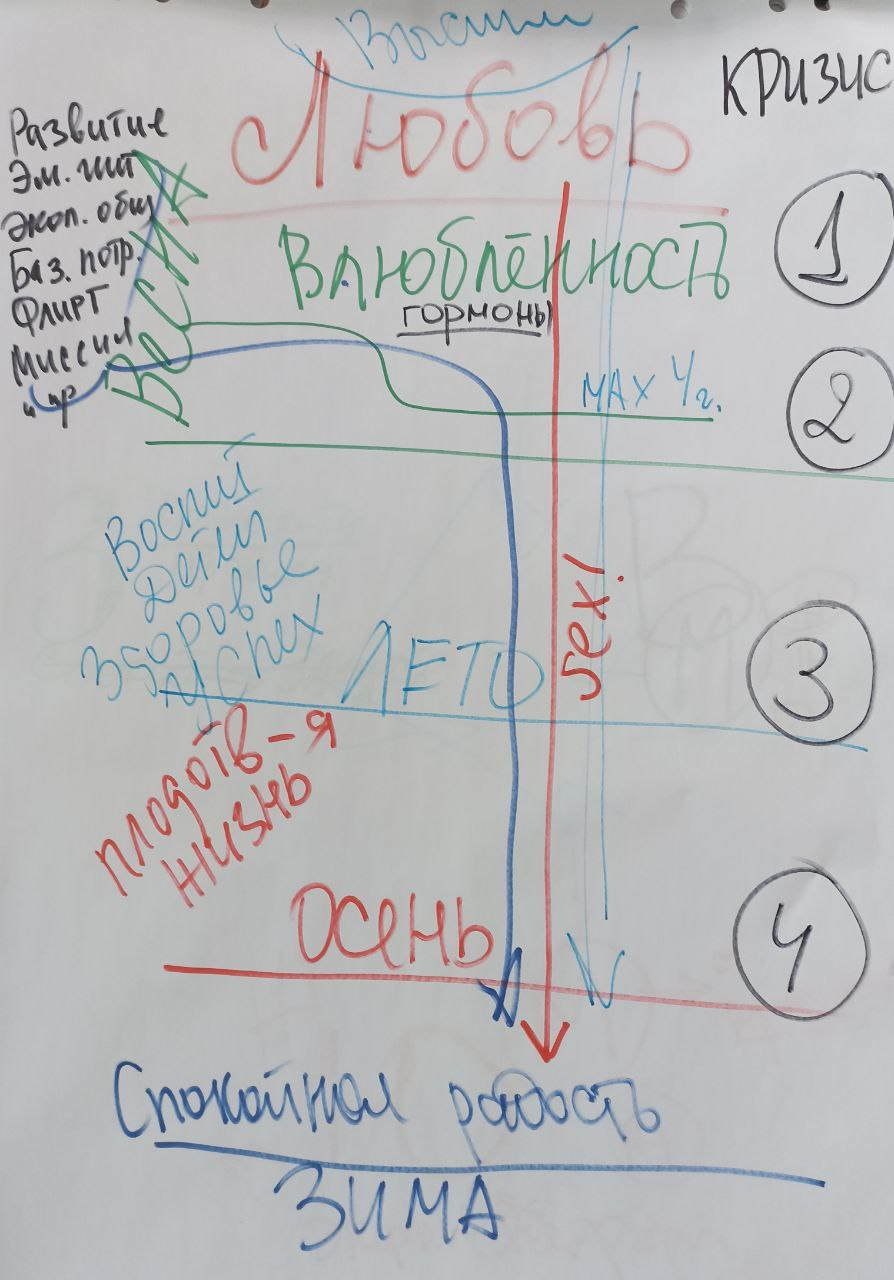 Высший
Любовь
КРИЗИС
Развитие
Эм. инт
Экол. общ
Баз. потр.
Флирт
Миссия
и пр
Весна
Влюблённость
гормоны
МАХ 4 г.
1
2
Воспит
Дети
Здоровье
Успех
ЛЕТО
sex!
3
плодотв-я
жизнь
Осень
4
Спокойная радость
ЗИМА